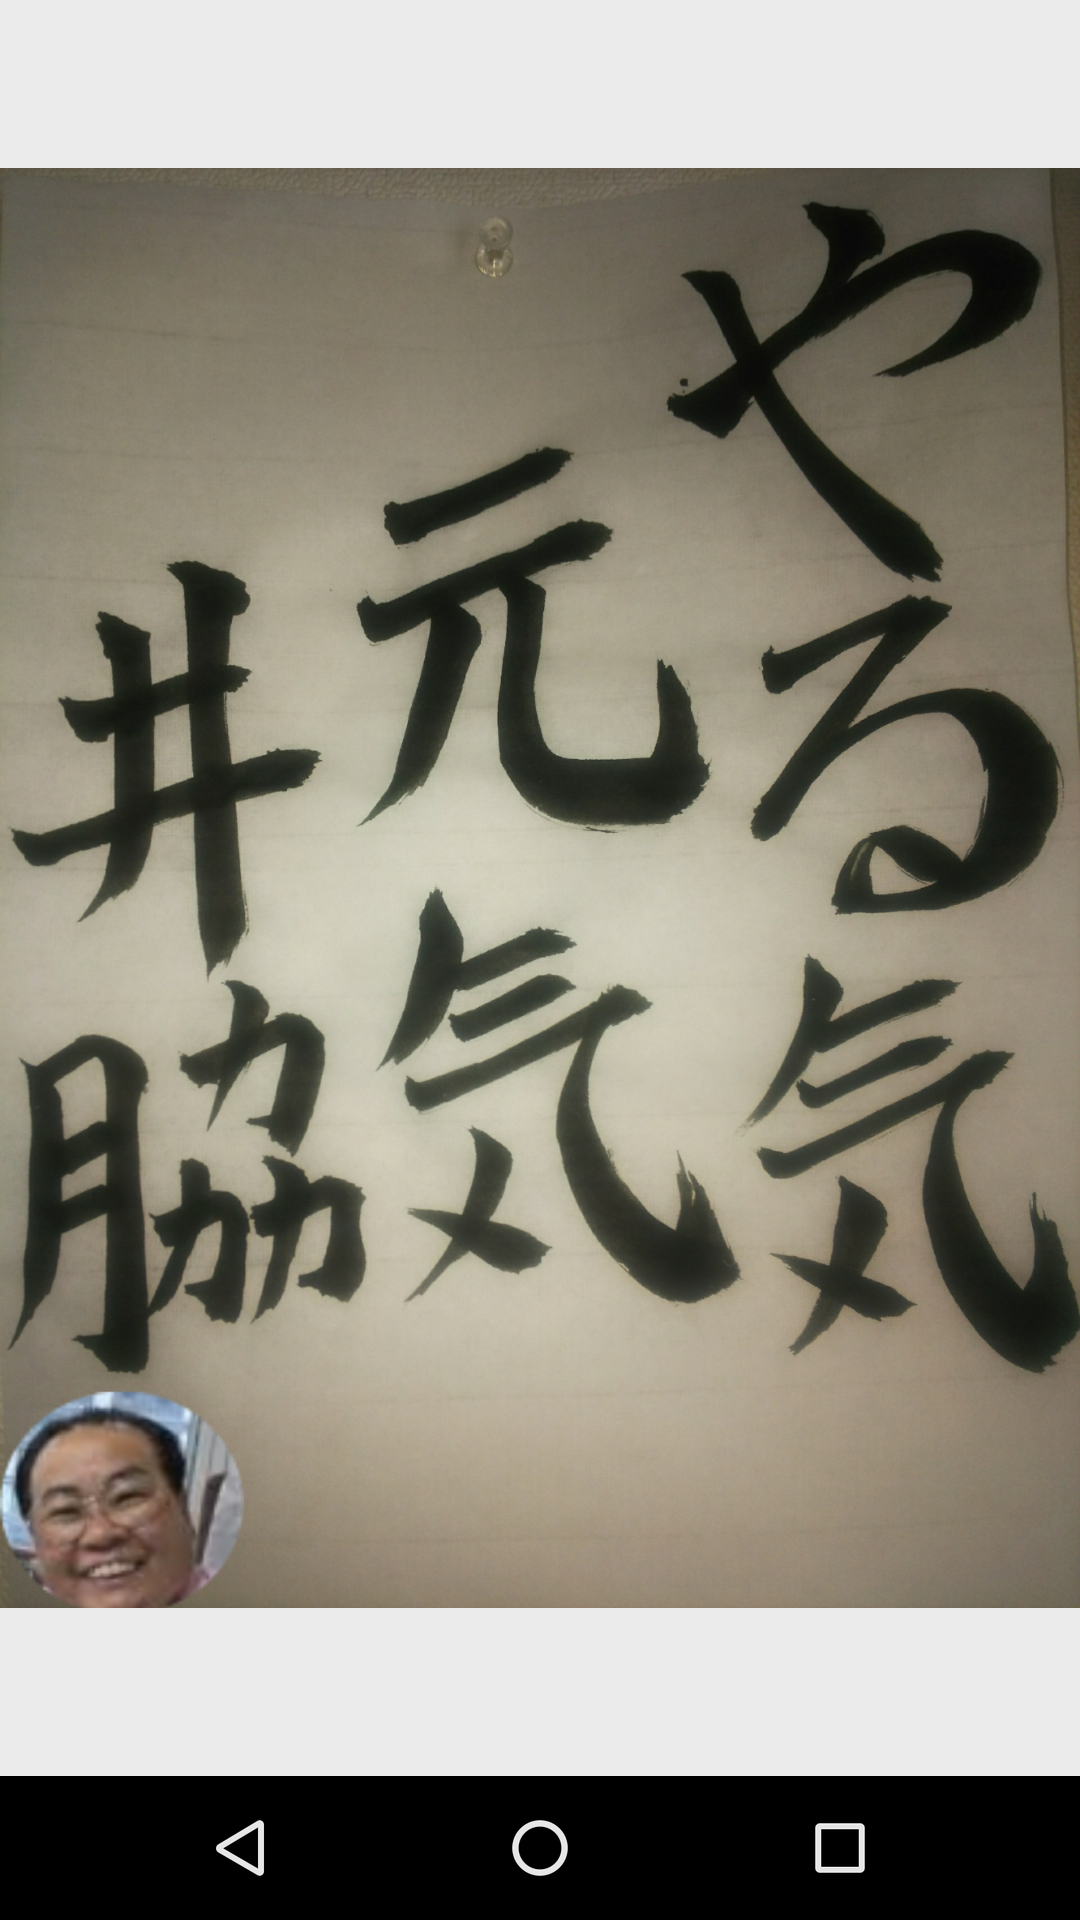 やる気
元気
井脇